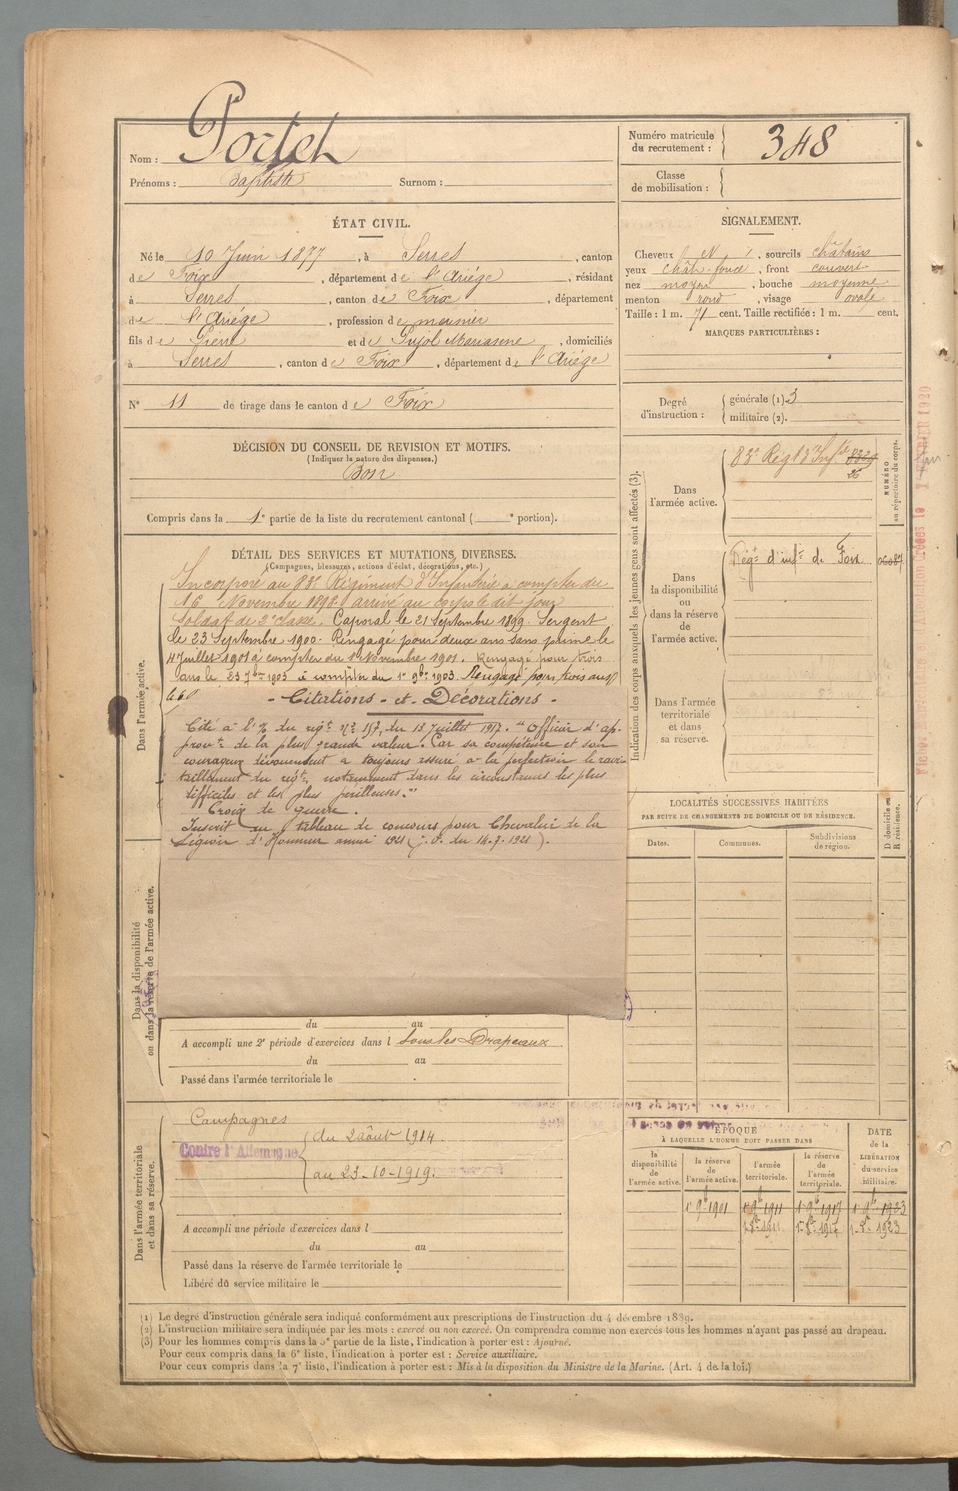 Nom : Portet
Prénoms : Baptiste Surnom :
Numéro matricule du recrutement : 348
Classe de mobilisation :
ÉTAT CIVIL.
Né le 10 Juin 1877, à Serres, canton
de Foix, département de l'Ariége, résidant
à Serres, canton de Foix, département
de l'Ariége, profession de meunier
fils de Pierre et de Pujol Marianne, domiciliés
à Serres, canton de Foix, département de l'Ariége
N° 11 de tirage dans le canton de Foix
SIGNALEMENT.
Cheveux N, sourcils châtains
yeux chât-foncé, front couvert
nez moyen, bouche moyenne
menton rond, visage ovale
Taille : 1 m. 71 cent. Taille rectifiée : 1 m. cent.
MARQUES PARTICULIÈRES :
Degré d'instruction : générale (1) 3
militaire (2).
DÉCISION DU CONSEIL DE REVISION ET MOTIFS.
(Indiquer la nature des dispenses.)
Bon
Compris dans la 1e partie de la liste du recrutement cantonal ( e portion).
DÉTAIL DES SERVICES ET MUTATIONS DIVERSES.
(Campagnes, blessures, actions d'éclat, décorations, etc.)
Dans l'armée active.
Incorporé au 83e Régiment d'Infanterie à compter du
16 Novembre 1898 arrivé au corps le dit jour
Soldat de 2e classe. Caporal le 21 Septembre 1899. Sergent
le 23 Septembre 1900. Rengagé pour deux ans sans prime le
4 Juillet 1901 à compter du 1er Novembre 1901. Rengagé pour trois
ans le 23 7bre 1903 à compter du 1er 9bre 1903. Rengagé pour trois ans
- Citations - et - Décorations -
Cité à l'O/ du régt n° 157 du 13 Juillet 1917. "Officier d'ap-
provt de la plus grande valeur. Par sa compétence et son
courageux dévouement a toujours assuré à la perfection le ravi-
taillement du régt, notamment dans les circonstances les plus
difficiles et les plus périlleuses."
Croix de guerre.
Inscrit au tableau de concours pour Chevalier de la
Légion d'Honneur année 1921 (J. O. du 14.7.1921).
Dans la disponibilité
ou dans la réserve de l'armée active.
du au
A accompli une 2e période d'exercices dans l sous les Drapeaux
du au
Passé dans l'armée territoriale le
Dans l'armée territoriale
et dans sa réserve.
Campagnes
Contre l'Allemagne
du 2 août 1914.
au 23-10-1919.
A accompli une période d'exercices dans l
du au
Passé dans la réserve de l'armée territoriale le
Libéré du service militaire le
Indication des corps auxquels les jeunes gens sont affectés (3).
Dans l'armée active.
83e Régt d'Infie
NUMÉRO au répertoire du corps.
Dans la disponibilité ou dans la réserve de l'armée active.
Régt d'infie de Foix
Dans l'armée territoriale et dans sa réserve.
LOCALITÉS SUCCESSIVES HABITÉES
PAR SUITE DE CHANGEMENTS DE DOMICILE OU DE RÉSIDENCE.
Dates. Communes. Subdivisions de région. D domicile ou R résidence.
ÉPOQUE
À LAQUELLE L'HOMME DOIT PASSER DANS
DATE de la LIBÉRATION du service militaire.
la disponibilité de l'armée active. la réserve de l'armée active. l'armée territoriale. la réserve de l'armée territoriale.
1er 9b 1901 1er 9b 1911 1er 9b 1917 1er 9b 1923
(1) Le degré d'instruction générale sera indiqué conformément aux prescriptions de l'instruction du 4 décembre 1889.
(2) L'instruction militaire sera indiquée par les mots : exercé ou non exercé. On comprendra comme non exercés tous les hommes n'ayant pas passé au drapeau.
(3) Pour les hommes compris dans la 5e partie de la liste, l'indication à porter est : Ajourné.
Pour ceux compris dans la 6e liste, l'indication à porter est : Service auxiliaire.
Pour ceux compris dans la 7e liste, l'indication à porter est : Mis à la disposition du Ministre de la Marine. (Art. 4 de la loi.)